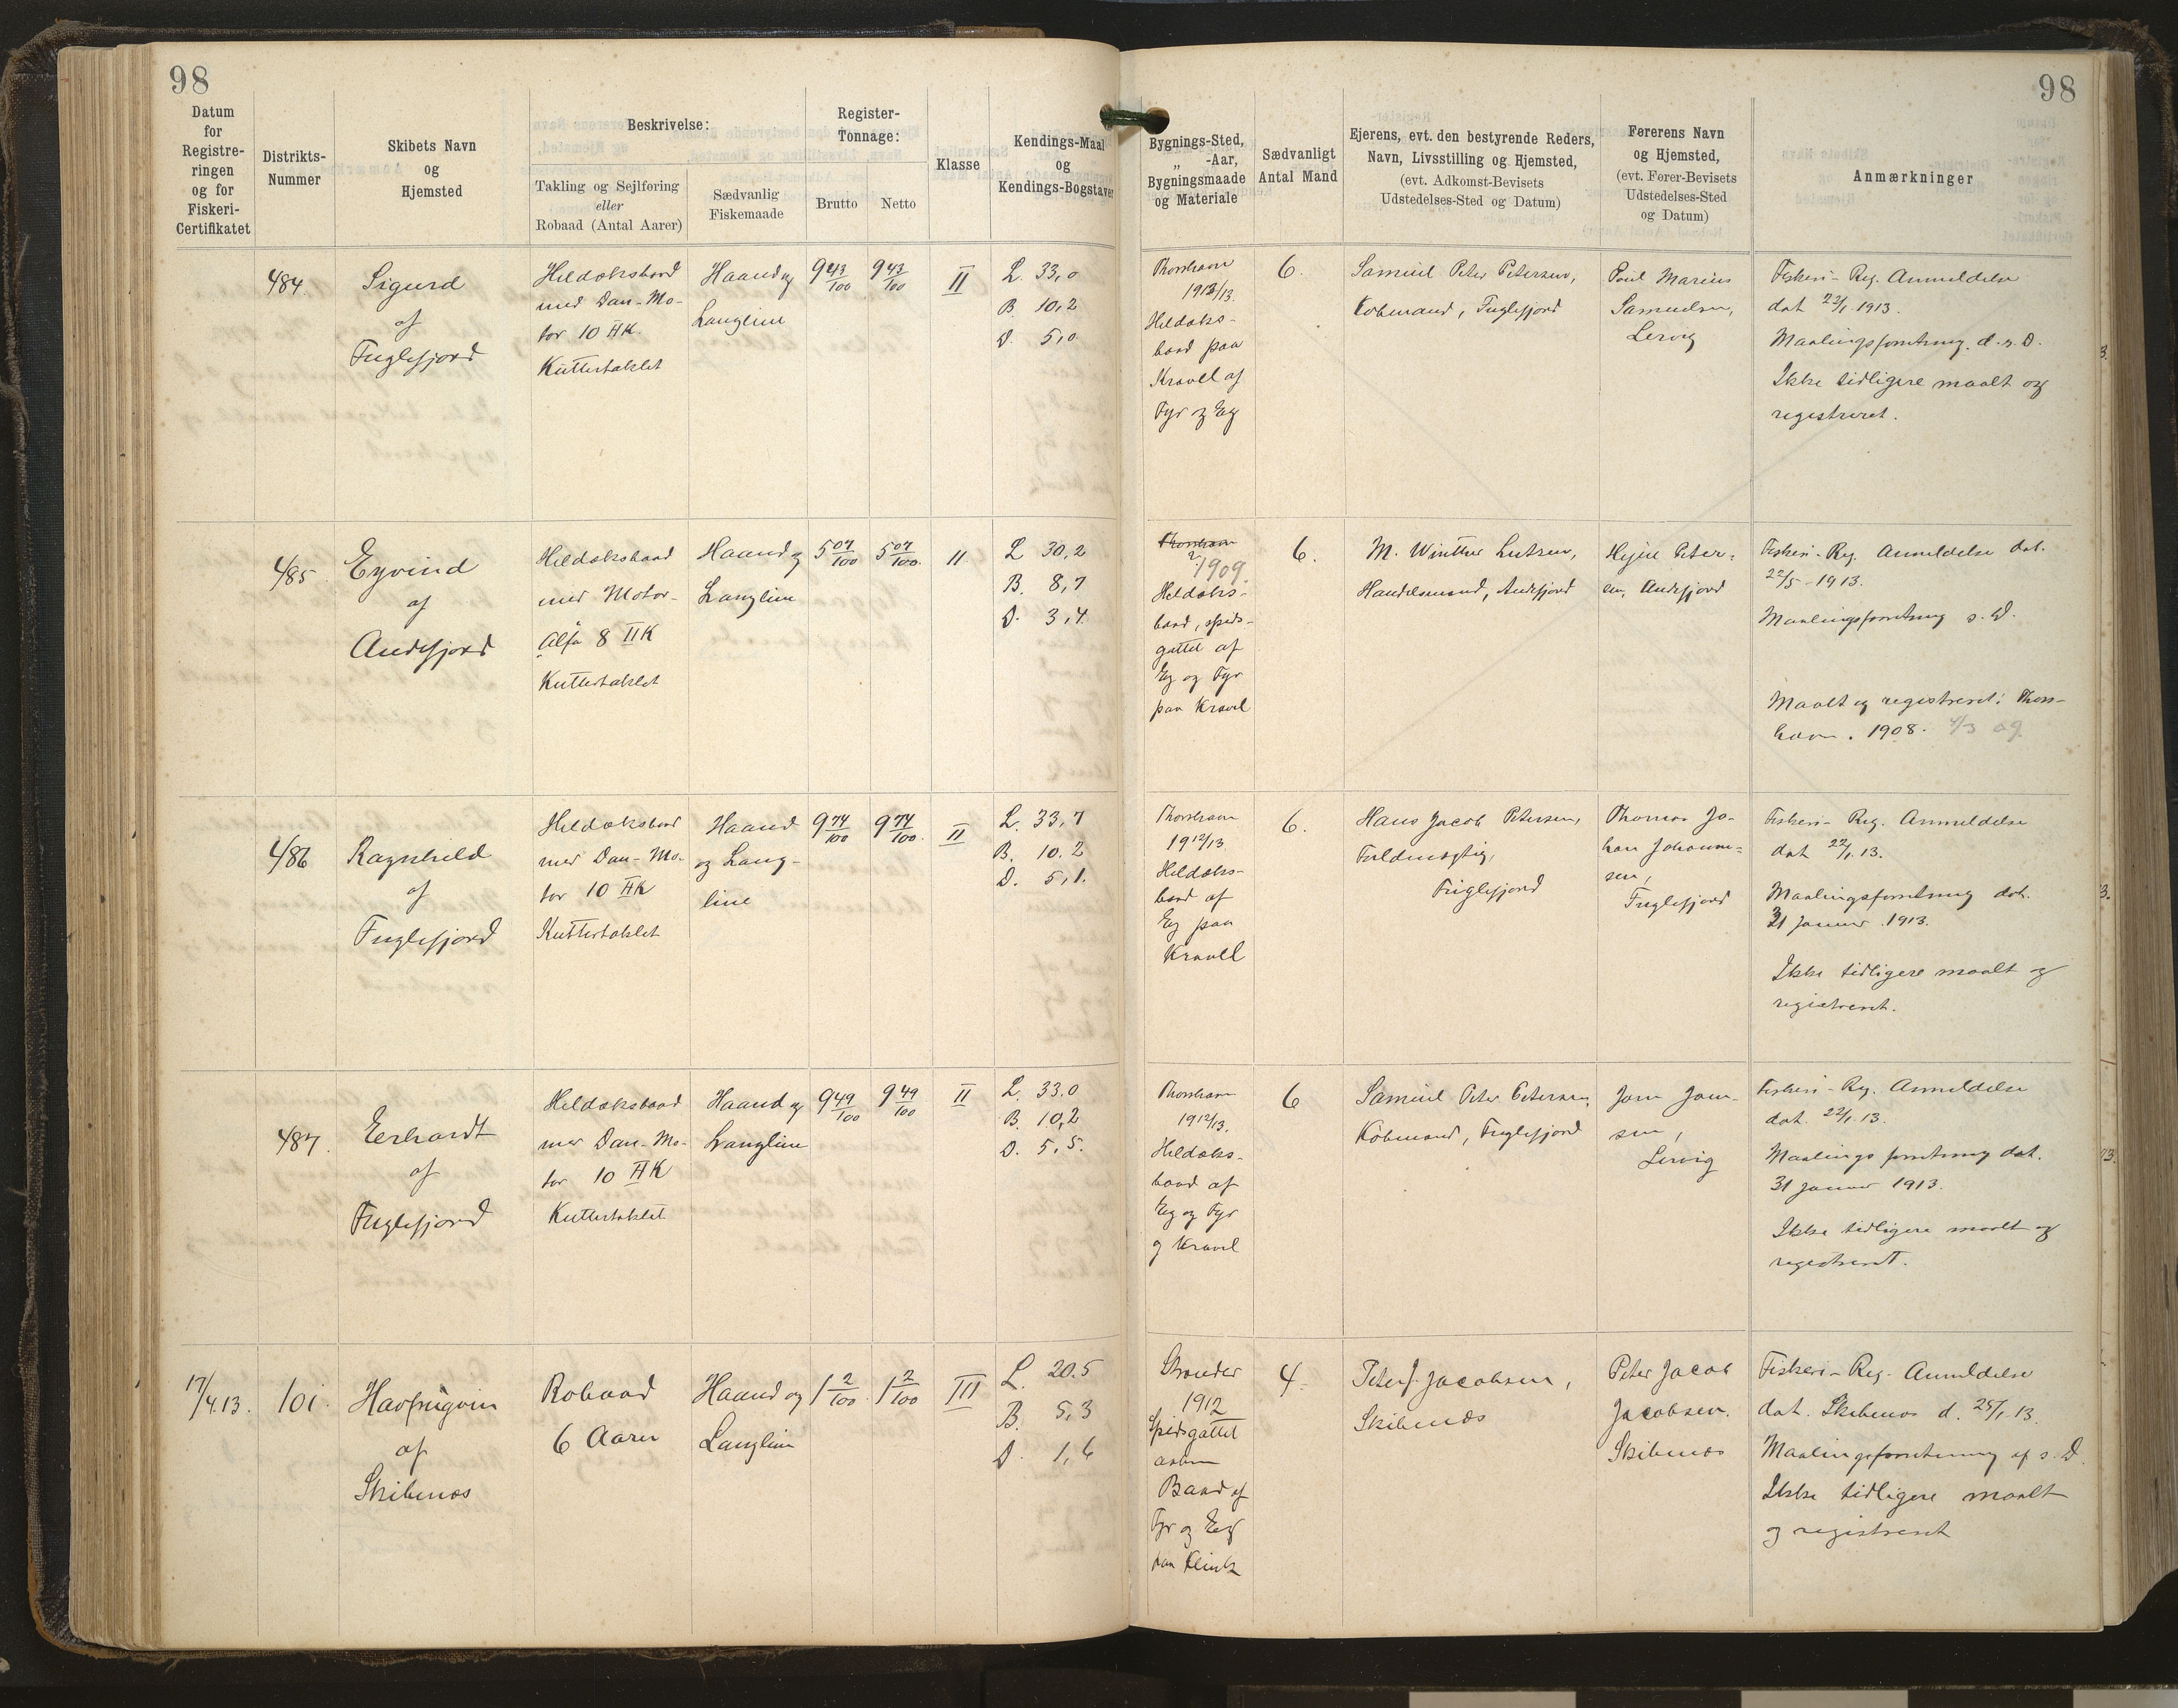 98
98
Datum
for
Registre-
ringen
og for
Fiskeri-
Certifikatet
Distrikts-
Nummer
Skibets Navn
og
Hjemsted
Beskrivelse:
Takling og Sejlføring
eller
Robaad (Antal Aarer)
Sædvanlig
Fiskemaade
Register-
Tonnage:
Brutto
Netto
Klasse
Kendings-Maal
og
Kendings-Bogstaver
Bygnings-Sted,
„ -Aar,
Bygningsmaade
og Materiale
Sædvanligt
Antal Mand
Ejerens, evt. den bestyrende Reders,
Navn, Livsstilling og Hjemsted,
(evt. Adkomst-Bevisets
Udstedelses-Sted og Datum)
Førerens Navn
og Hjemsted,
(evt. Fører-Bevisets
Udstedelses-Sted
og Datum)
Anmærkninger
484.
Sigurd
af
Fuglefjord
Heldæksbaad
med Dan-Mo-
tor 10 HK.
Kuttertaklet
Haand og
Langline
9 43/100
9 43/100
II
L. 33,0
B. 10,2
D. 5,0.
Thorshavn
1912/13.
Heldæks-
baad paa
Kravel af
Fyr og Eg
6.
Samuel Peter Petersen,
Købmand, Fuglefjord
Poul Marius
Samuelsen,
Lervig
Fiskeri-Reg. Anmeldelse
dat 22/1. 1913.
Maalingsforretning. d. s. D.
Ikke tidligere maalt og
registreret.
485
Eyvind
af
Andefjord
Heldæksbaad
med Motor-
Alfa 8 HK
Kuttertaklet
Haand og
Langline
5 07/100
5 07/100.
II.
L 30,2
B. 8,7
D. 3,4.
Thorshavn
1909.
Heldæks-
baad, spids-
gattet af
Eg og Fyr
paa Kravel
6.
M. Winther Lutzen,
Handelsmand, Andefjord
Hejne Peter-
sen, Andefjord
Fiskeri-Reg. Anmeldelse dat.
22/5-1913.
Maalingsforretning s. D.
Maalt og registreret: Thors-
havn. 1908. 4/3 09
486
Ragnhild
af
Fuglefjord
Heldæksbaad
med Dan-Mo-
tor 10 HK
Kuttertaklet
Haand
og Lang-
line
9 74/100
9 74/100.
II
L. 33,7
B. 10.2
D. 5,1.
Thorshavn
1912/13
Heldæks-
baad af
Eg paa
Kravel
6.
Hans Jacob Petersen,
Fuldmægtig,
Fuglefjord
Thomas Jo-
han Johanne-
sen,
Fuglefjord
Fiskeri-Reg. Anmeldelse
dat 22/1. 13.
Maalingsforretning dat.
31 Januar 1913.
Ikke tidligere maalt og
registreret.
487.
Eerhardt
af
Fuglefjord
Heldæksbaad
med Dan-Mo-
tor 10 HK
Kuttertaklet
Haand og
Langline
9 49/100
9 49/100
II
L. 33.0
B. 10,2
D. 5,5.
Thorshavn
1912/13.
Heldæks-
baad af
Eg og Fyr
og Kravel
6
Samuel Peter Petersen,
Købmand, Fuglefjord
Joen Joen-
sen,
Lervig
Fiskeri-Reg. Anmeldelse
dat. 22/1. 13.
Maalings forretning dat.
31 Januar 1913.
Ikke tidligere maalt og
registreret.
17/4 13.
101
Havfrugvin
af
Skibenæs
Robaad
6 Aarer
Haand og
Langline
1 2/100
1 2/100
III
L. 20.5
B. 5,3
D. 1,6
Strænder
1912
Spidsgattet
aaben
Baad af
Fyr og Eg
paa Klink
4
Peter J. Jacobsen,
Skibenæs
Peter Jacob
Jacobsen.
Skibenæs
Fiskeri-Reg. Anmeldelse
dat. Skibenæs d. 25/1. 13.
Maalingsforretning af s. D.
Ikke tidligere maalt
og registreret